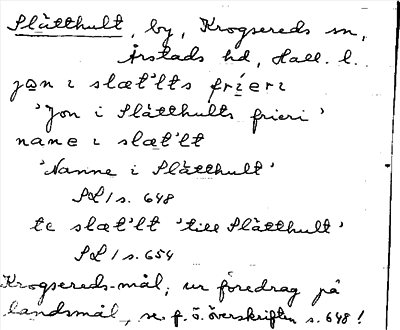 Slätthult, by, Krogsereds sn,
Årstads hd, Hall. l.
jo̤n ı slæt'lts fríerı
'Jon i Slätthults frieri'
nane ı slæt'lt
'Nanne i Slätthult'
SL 1 s. 648
te slæt'lt 'till Slätthult'
SL 1 s. 654
Krogsereds-mål; ur föredrag på
landsmål, se f. ö. överskriften s. 648!